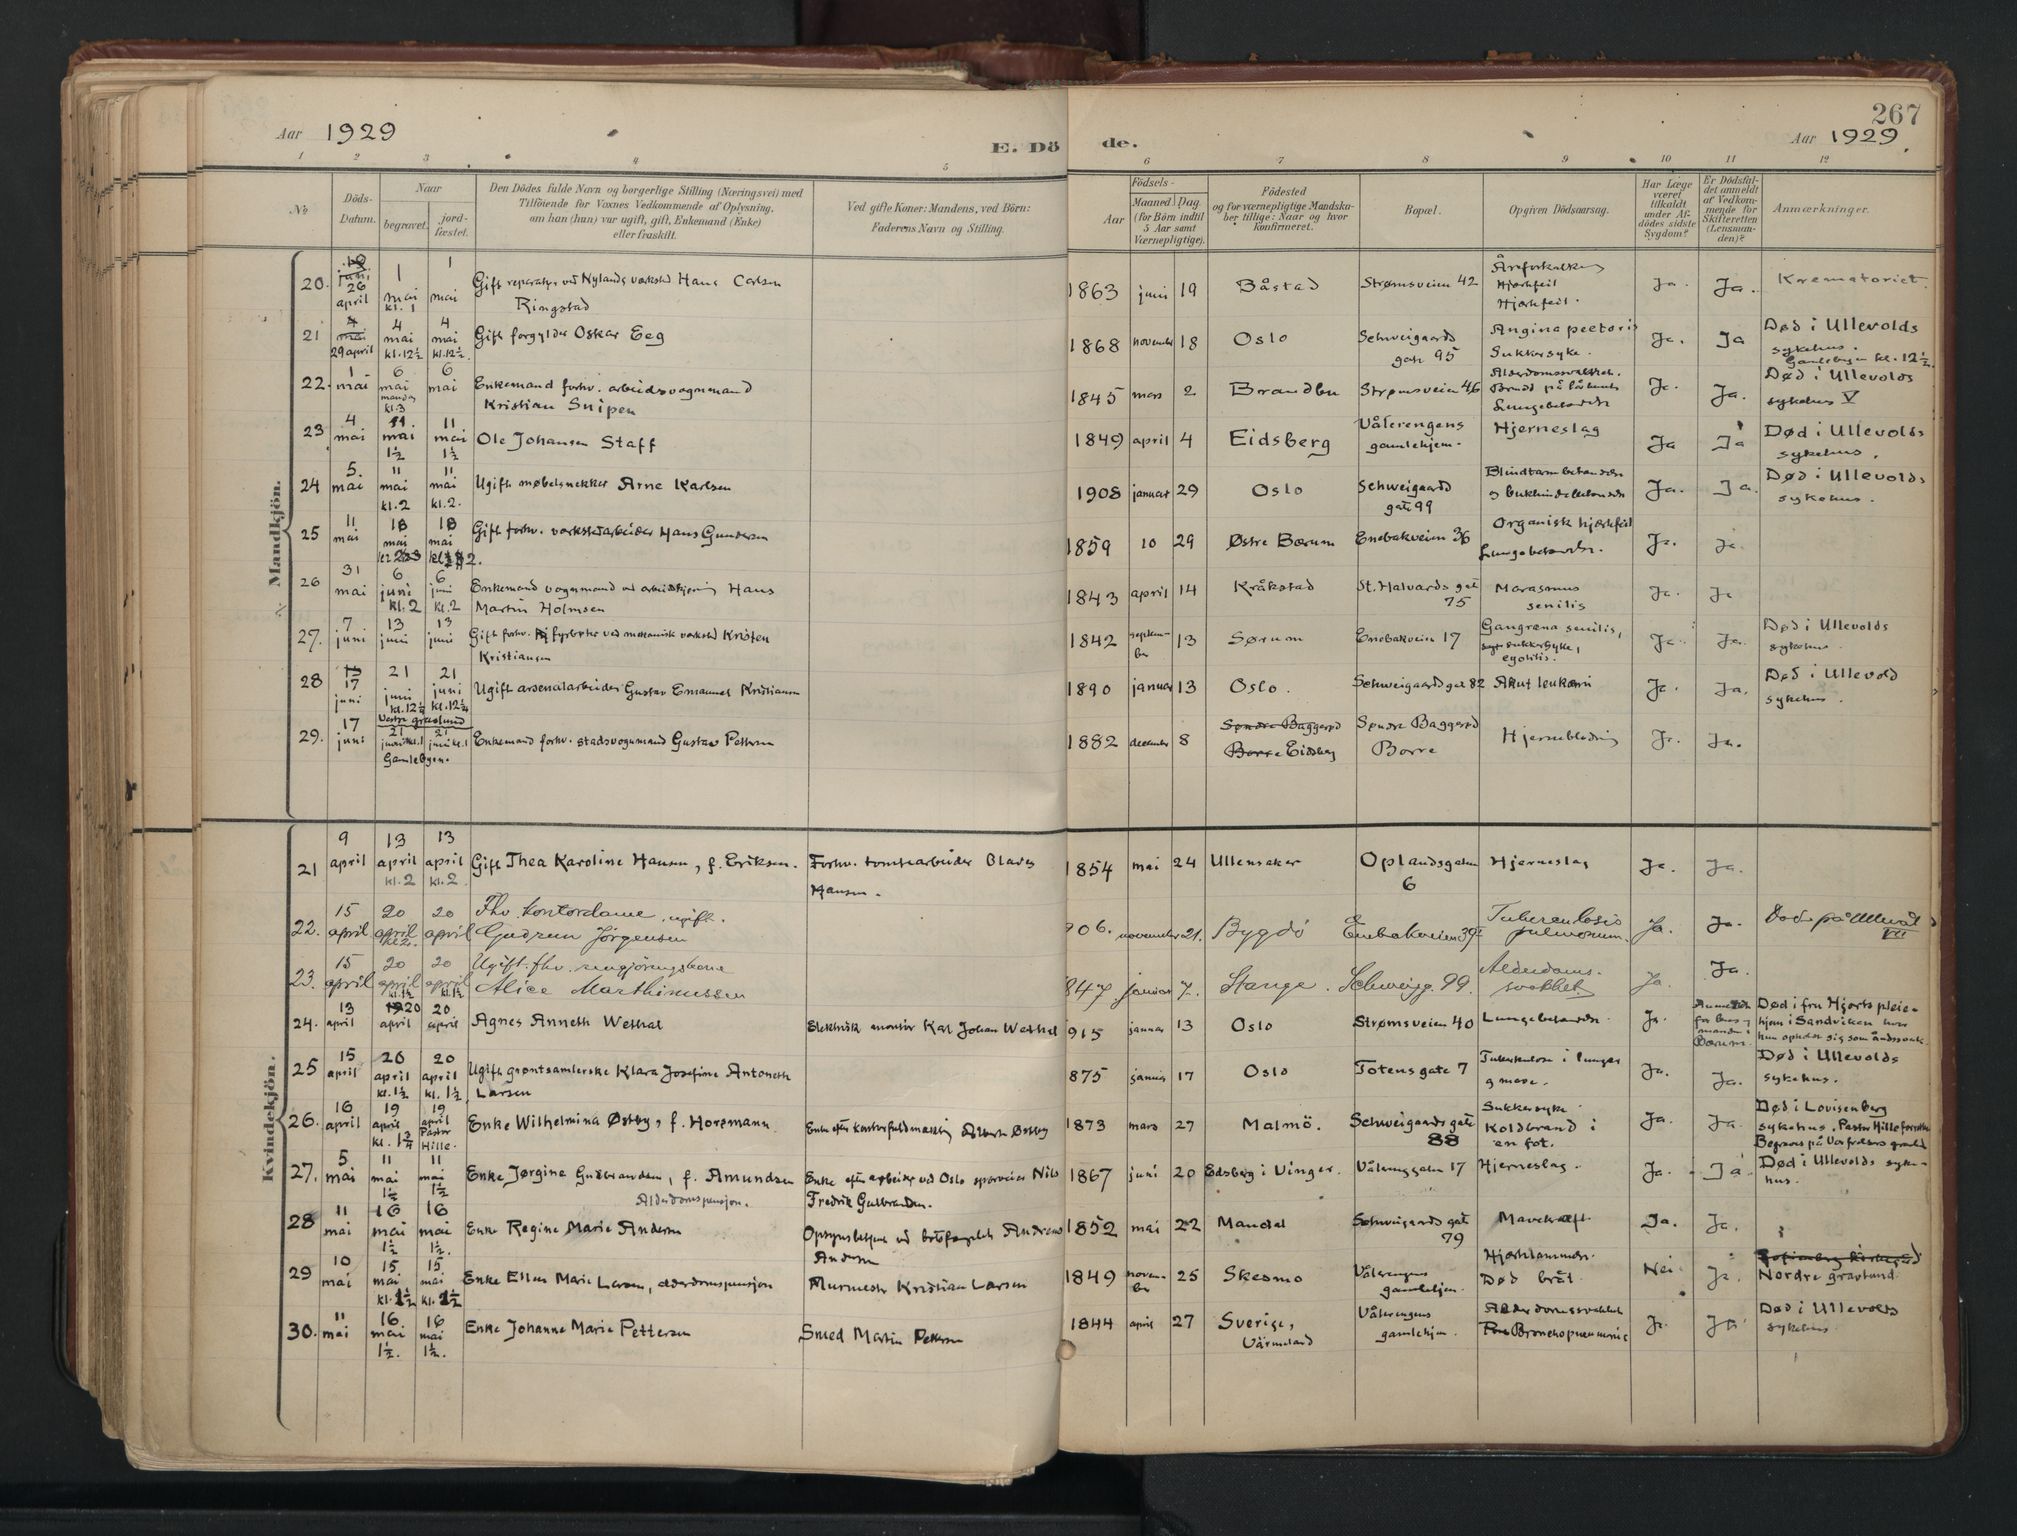 267
Aar 1929
E. Dö de.
Aar 1929.
1 2 3 4 5 6 7 8 9 10 11 12
No
Döds-Datum.
Naar
begravet.
jord-fæstet.
Den Dödes fulde Navn og borgerlige Stilling (Næringsvei) med
Tilföiende for Voxnes Vedkommende af Oplysning,
om han (hun) var ugift, gift, Enkemand (Enke)
eller fraskilt.
Ved gifte Koner: Mandens, ved Börn:
Faderens Navn og Stilling.
Födsels-
Aar
Maaned Dag.
(for Börn indtil
5 Aar samt
Værnepligtige).
Födested
og for værnepligtige Mandska-
ber tillige: Naar og hvor
konfirmeret.
Bopæl.
Opgiven Dödsaarsag.
Har Læge
været
tilkaldt
under Af-
dödes sidste
Sygdom?
Er Dödsfal-
det anmeldt
af Vedkom-
mende for
Skifteretten
(Lensman-
den)?
Anmærkninger.
Mandkjön.
20. 26 april 1 mai kl. 1 1 mai Gift reparatør ved Nylands værksted Hans Carlsen
Ringstad 1863 juni 19 Båstad Strømsveien 42 Årforkalkning
Hjertefeil Ja. Ja. Krematoriet.
21 29 april 4 mai kl. 12½ 4 mai kl. 12½ Gift forgylder Oskar Eeg 1868 november 18 Oslo Schweigaards
gate 95 Angina pectoris
Sukkersyke. Ja. Ja Død i Ullevolds
sykehus.
Gamlebyen kl. 12½
22. 1 mai 6 mai mandag kl. 3 6 mai Enkemand forhv. arbeidsvognmand
Kristian Snipen 1845 mars 2 Brandbu Strømsveien 46 Alderdomssvakhet.
Brudd på lårbenet
Lungebetændelse Ja. Ja. Død i Ullevolds
sykehus V
23 4 mai 11 mai 1½ 11 mai 1½ Ole Johansen Staff 1849 april 4 Eidsberg Vålerengens
gamlehjem. Hjerneslag Ja Ja Død i Ullevolds
sykehus.
24 5. mai 11 mai kl. 2 11 mai kl. 2. Ugift møbelsnekker Arne Karlsen 1908 januar 29 Oslo Schweigaards
gate 99 Blindtarmbetændelse
og bukhindebetændelse Ja. Ja. Død i Ullevolds
sykehus.
25 11 mai 18 mai 18 mai Gift forhv. verkstedarbeider Hans Gundersen 1859 10 29 Østre Bærum Enebakveien 36 Organisk hjertefeil
Lungebetændelse. Ja. Ja.
26 31 mai 6 juni kl. 2 6 juni kl. 2 Enkemand vognmand ved arbeidskjøring Hans
Martin Holmsen 1843 april 14 Kråkstad St. Halvards gate
75 Marasmus
senilis Ja. Ja
27. 7 juni 13 juni 13 juni Gift forhv. fyrbøter ved mekanisk verksted Kristen
Kristiansen 1842 september 13 Sørum Enebakveien 17 Gangræna senilis,
sukkersyke, Ja. Ja. Død i Ullevolds
sykehus.
28 17 juni 21 juni kl. 12¼ 21 juni kl. 12¼ Ugift arsenalarbeider Gustav Emanuel Kristiansen 1890 januar 13 Oslo. Schweigaards gate 82 Akut leukæmi Ja. Ja. Død i Ullevold
sykehus.
Vestre gravlund
29. 17 juni 21 juni kl. 1 Gamlebyen. 21 juni kl. 1 Enkemand forhv. stadsvognmand Gustav Pettersen 1882 december 8 Søndre Baggerød
Borre Eidsberg Søndre Baggerød
Borre Hjerneblødning Ja. Ja.
Kvindekjön.
21 9 april 13 april kl. 2 13 april kl. 2 Gift Thea Karoline Hansen, f. Eriksen. Forhv. tomtearbeider Olaves
Hansen. 1854 mai 24 Ullensaker Oplandsgaten
6 Hjerneslag Ja. Ja.
22. 15 april 20 april kl. 2. 20 april Fhv. kontordame, ugift.
Gudrun Jørgensen 906. november 21. Bygdö Enebakveien 39 I Tuberculosis
pulmonum. Ja. Ja. Død på Ullevål
VII
23. 15 april 20 april kl. 1½ 20 april kl. 1½ Ugift. fhv. rengjøringskone
Alice Marthinussen 847 januar 7. Stange. Schweigg. 99. Alderdoms-
svakhet Ja. Ja.
24. 13 april 20 april 20 april Agnes Anneth Wethal Elektrisk montør Karl Johan Wethal 915 januar 13 Oslo Strømsveien 40 Lungebetændelse. Ja. Anmeldt
for lens-
manden i
Bærum. Død i fru Hjorts pleie-
hjem i Sandviken hvor
hun opholdt sig som åndssvak.
25 15 april 20 april kl. 1½ 20 april kl. 1½ Ugift grøntsamlerske Klara Josefine Antoneth
Larsen 875 januar 17 Oslo Totens gate 7 Tuberkulose i lunger
og mave. Ja. Ja. Død i Ullevolds
sykehus.
26. 16 april 19 april kl. 1¾ 19 april Pastor Hille. Enke Wilhelmina Østby, f. Horsmann. Enke efter kontorfuldmægtig Albert Østby 1873 mars 27 Malmö. Schweigaards gate
88 Sukkersyke
Koldbrand i
en fot. Ja. Ja. Død i Lovisenberg
sykehus. Pastor Hille forrettet
Begraves på Vor frelsers gravlund
27. 5 mai 11 mai 1½ 11 mai 1½ Enke Jørgine Gulbrandsen, f. Amundsen
Alderdomspensjon. Enke efter arbeider ved Oslo sporveier Nils
Fredrik Gulbrandsen. 1867 juni 20 Edsberg i Vinger. Vålerenggaten 17 Hjerneslag. Ja. Ja Død i Ullevolds syke-
hus.
28 11 mai 16 mai 1½ 16 mai 1½. Enke Regine Marie Andersen Opsynsbetjent ved Andreas
Andersen 1852 mai 22 Mandal Schweigaards gate
79 Mavekræft Ja. Ja.
29 10 mai 15. mai kl. 1½ 15 mai kl. 1½ Enke Ellen Marie Larsen, alderdomspensjon Murmester Kristian Larsen 1849 november 25 Skesmo Vålerengens
gamlehjem. Hjertelammelse.
Død bråt. Nei Ja. Sofienberg kirkegård
Nordre gravlund.
30. 11 mai 16. mai 1½. 16 mai 1½. Enke Johanne Marie Pettersen Smed Martin Pettersen 1844 april 27 Sverige,
Värmland Vålerengens
gamlehjem. Alderdomssvakhet
Bronchopneumonie Ja. Ja Død i Ullevolds
sykehus